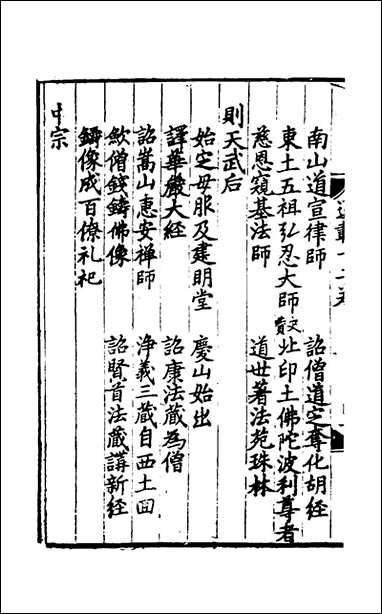 南山道宣律師　詔僧道定奪化胡經
東土五祖弘忍大師　北印土佛陀波利尊者
慈恩窺基法師　道世著法苑珠林
則天武后
始定母服及建明堂　慶山始出
譯華嚴大經　詔康法藏為僧
詔嵩山惠安禪師　淨義三藏自西土回
斂僧錢鑄佛像　詔賢首法藏講新經
鑄像成百僚礼祀
中宗